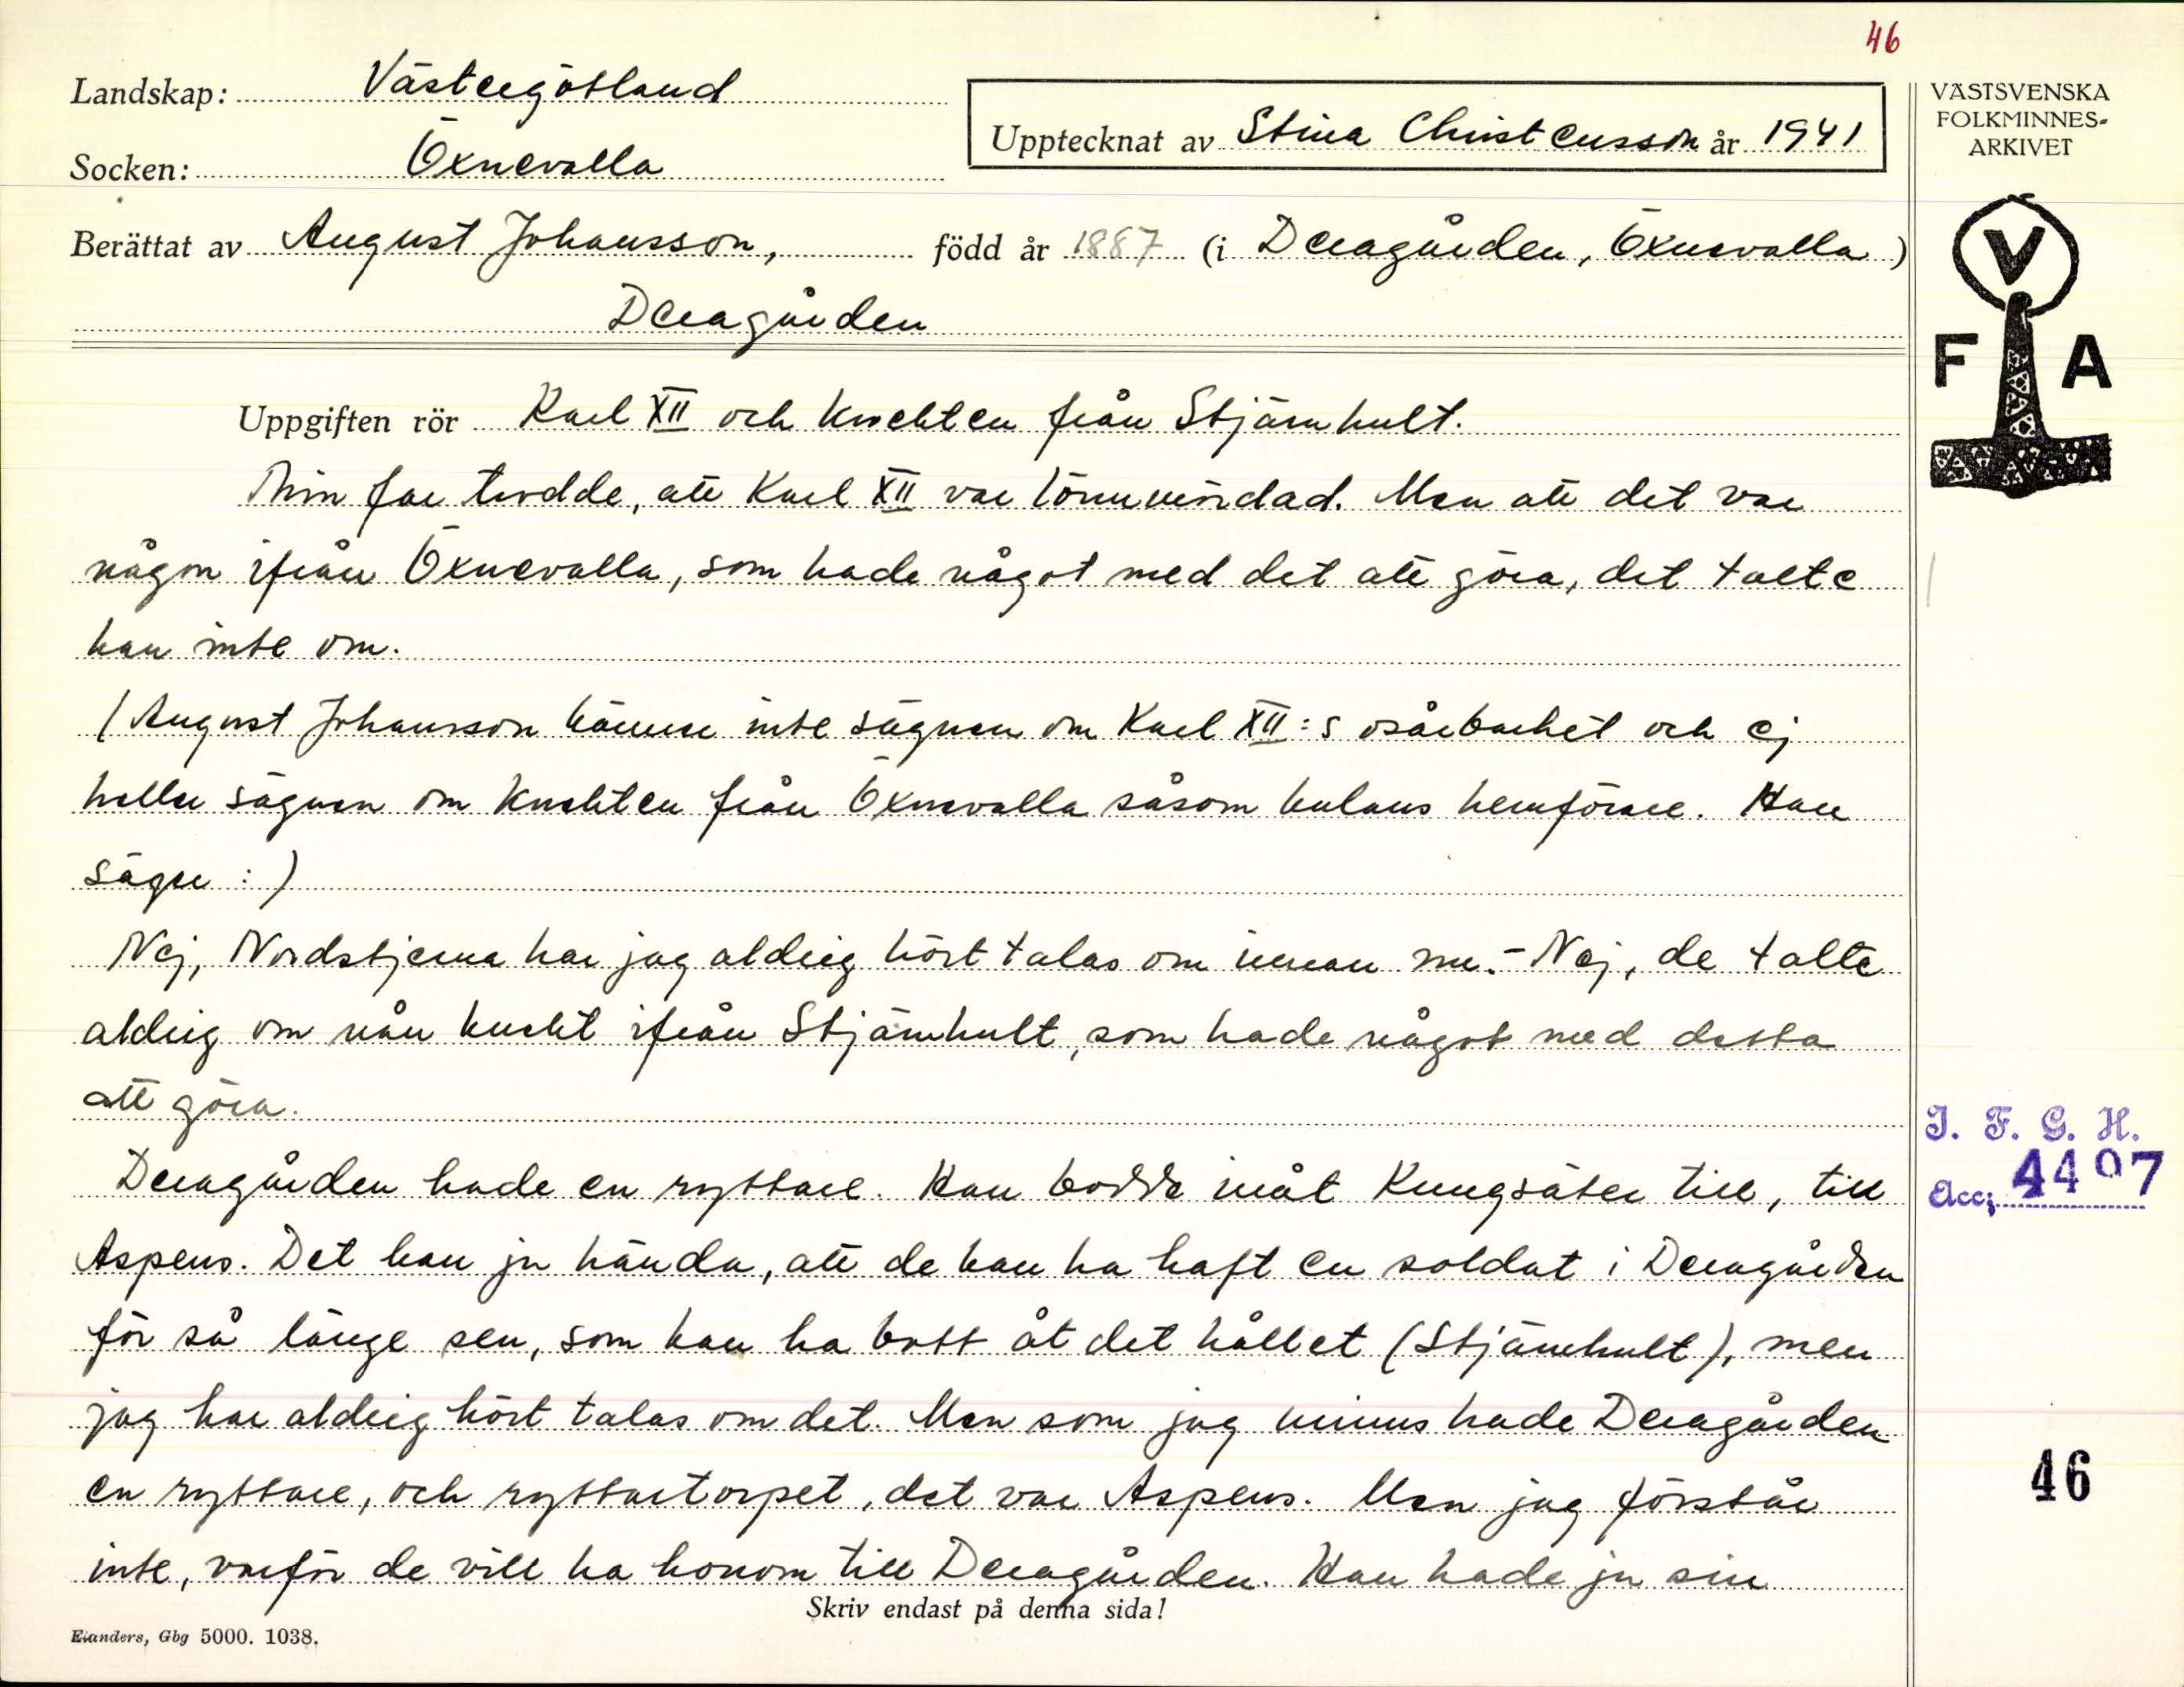 46
Landskap: Västergötland
Socken: Öxnevalla
Upptecknat av Stina Christensson år 1941
VÄSTSVENSKA
FOLKMINNES-
ARKIVET
Berättat av August Johansson, född år 1887 (i Deragården, Öxnevalla)
Deragården
V
F A
Uppgiften rör Karl XII och knekten från Stjärnhult.
Min far trodde, att Karl XII var lönnmördad. Men att det var
någon ifrån Öxnevalla, som hade något med det att göra, det talte
han inte om.
(August Johansson känner inte sägnen om Karl XII:s osårbarhet och ej
heller sägnen om knekten från Öxnevalla såsom kulans hemförare. Han
säger:)
Nej, Nordstjerna har jag aldrig hört talas om innan nu. - Nej, de talte
aldrig om nån knekt ifrån Stjärnhult, som hade något med detta
att göra.
Deragården hade en ryttare. Han bodde inåt Kungsäter till, till
Aspens. Det kan ju hända, att de kan ha haft en soldat i Deragården
för så länge sen, som kan ha bott åt det hållet (Stjärnhult), men
jag har aldrig hört talas om det. Men som jag minns hade Deragården
en ryttare, och ryttartorpet, det var Aspens. Men jag förstår
inte, varför de vill ha honom till Deragården. Han hade ju sin
I. F. G. H.
Acc; 4407
46
Skriv endast på denna sida!
Elanders, Gbg 5000. 1038.